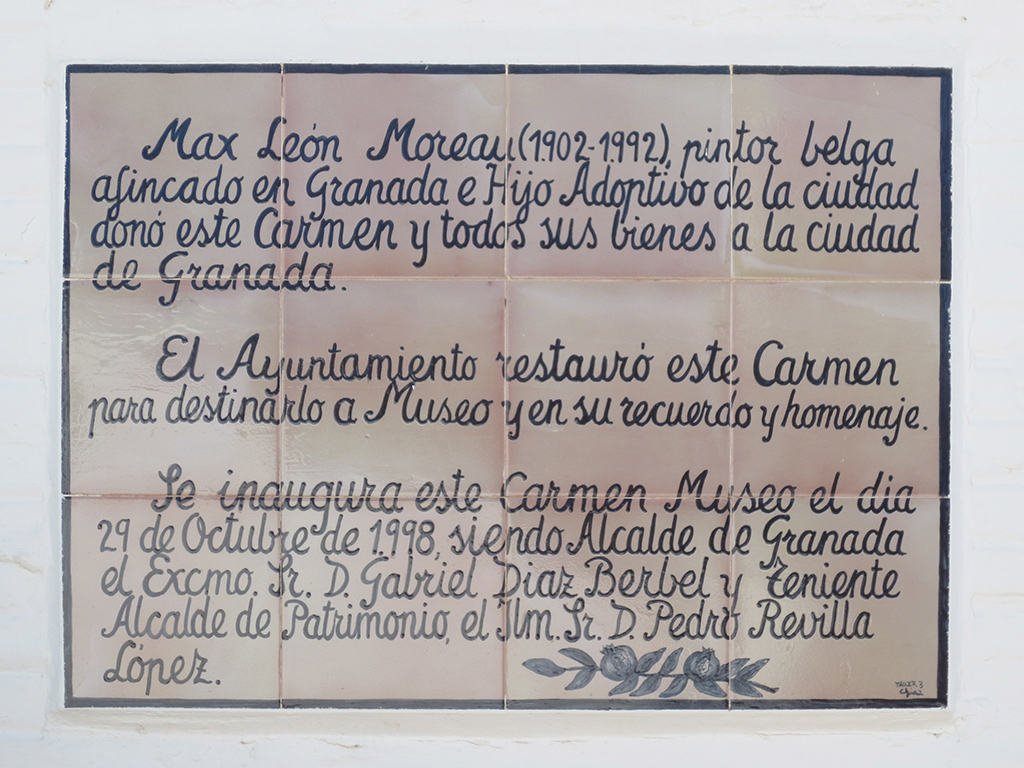 Max León Moreau (1.902-1.992), pintor belga
afincado en Granada e Hijo Adoptivo de la ciudad
donó este Carmen y todos sus bienes a la ciudad
de Granada.
El Ayuntamiento restauró este Carmen
para destinarlo a Museo y en su recuerdo y homenaje.
Se inaugura este Carmen Museo el dia
29 de Octubre de 1.998, siendo Alcalde de Granada
el Excmo. Sr. D. Gabriel Diaz Berbel y teniente
Alcalde de Patrimonio, el Ilm. Sr. D. Pedro Revilla
López.